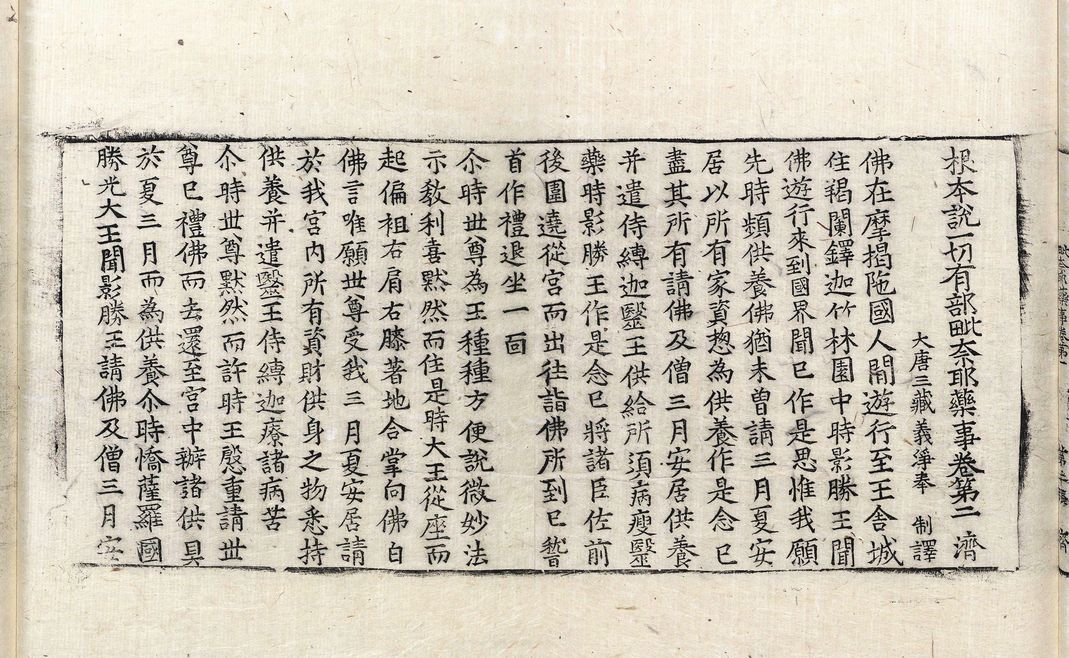 根本說一切有部毗奈耶藥事卷第二 濟
大唐三藏義淨奉 制譯
佛在摩揭陁國人閒遊行至王舍城
住羯闌鐸迦竹林園中時影勝王聞
佛遊行來到國界聞已作是思惟我願
先時頻供養佛猶未曾請三月夏安
居以所有家資惣為供養作是念已
盡其所有請佛及僧三月安居供養
并遣侍縛迦毉王供給所須病瘦毉
藥時影勝王作是念已將諸臣佐前
後圍遶從宮而出往詣佛所到已𥡴
首作禮退坐一面
尒時世尊為王種種方便說微妙法
示教利喜默然而住是時大王從座而
起偏袒右肩右膝著地合掌向佛白
佛言唯願世尊受我三月夏安居請
於我宮内所有資財供身之物悉持
供養并遣毉王侍縛迦療諸病苦
尒時世尊默然而許時王慇重請世
尊已禮佛而去還至宮中辦諸供具
於夏三月而為供養尒時憍薩羅國
勝光大王聞影勝王請佛及僧三月安